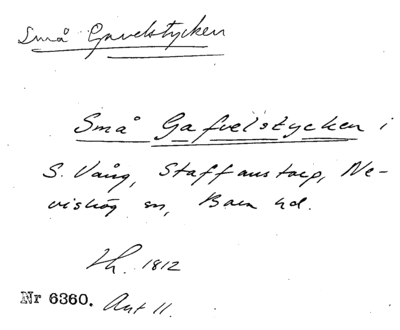 Små Gavelstycken
Små Gafvelstycken i
S. Vång, Staffanstorp, Ne-
vishög sn, Bara hd.
Th. 1812
Nr 6360. Ant 11.